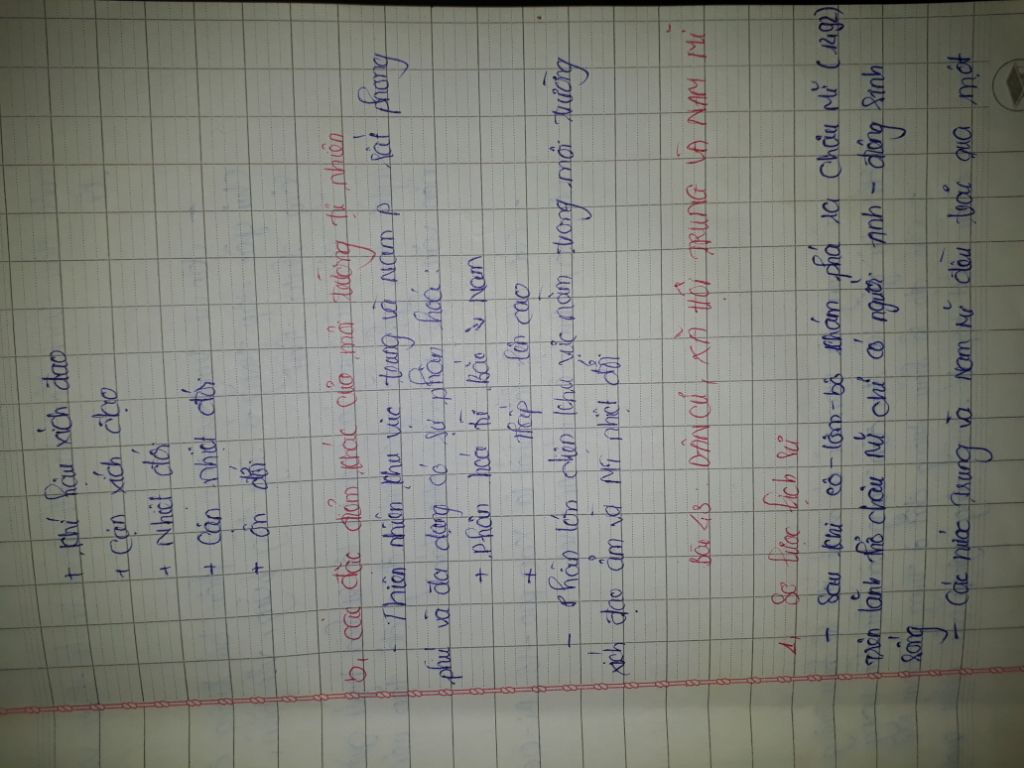 + Khí hậu xích đạo
+ Cận xích đạo
+ Nhiệt đới
+ Cận nhiệt đới
+ ôn đới
b, các đặc điểm khác của môi trường tự nhiên
- Thiên nhiên khu vực trung và Nam p rất phong
phú và đa dạng có sự phân hoá:
+ Phân hoá từ Bắc ↓ Nam
+ thấp lên cao
- Phần lớn diện khu vực nằm trong môi trường
xích đạo ẩm và nhiệt đới
Bài 43: DÂN CƯ, XÃ HỘI TRUNG VÀ NAM MĨ
1, Sơ lược lịch sử
- Sau khi cô-lôm-bô khám phá ra Châu Mĩ (1492)
trên lãnh thổ châu Mĩ chỉ có người anh-điêng sinh
sống
- Các nước trung và nam Mĩ đều trải qua một